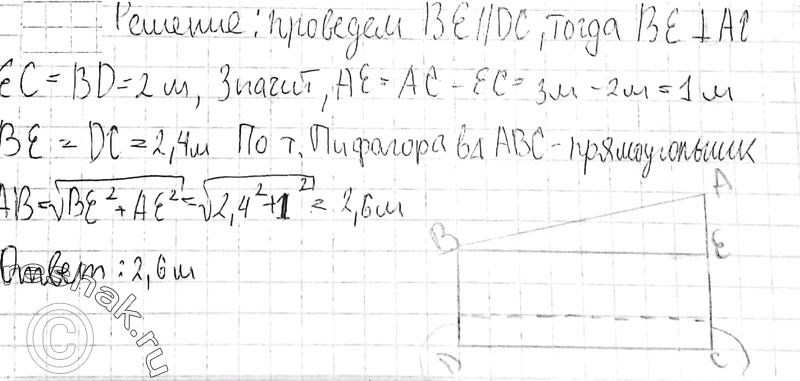 Решение: проведем BE||DC, тогда BE⊥AC
EC = BD = 2 м, Значит, AE = AC - EC = 3м - 2м = 1 м
BE = DC = 2,4м По т. Пифагора в Δ ABC - прямоугольник
AB = √BE² + AE² = √2,4² + 1² = 2,6 м
Ответ: 2,6 м
A
B
E
D
C
©